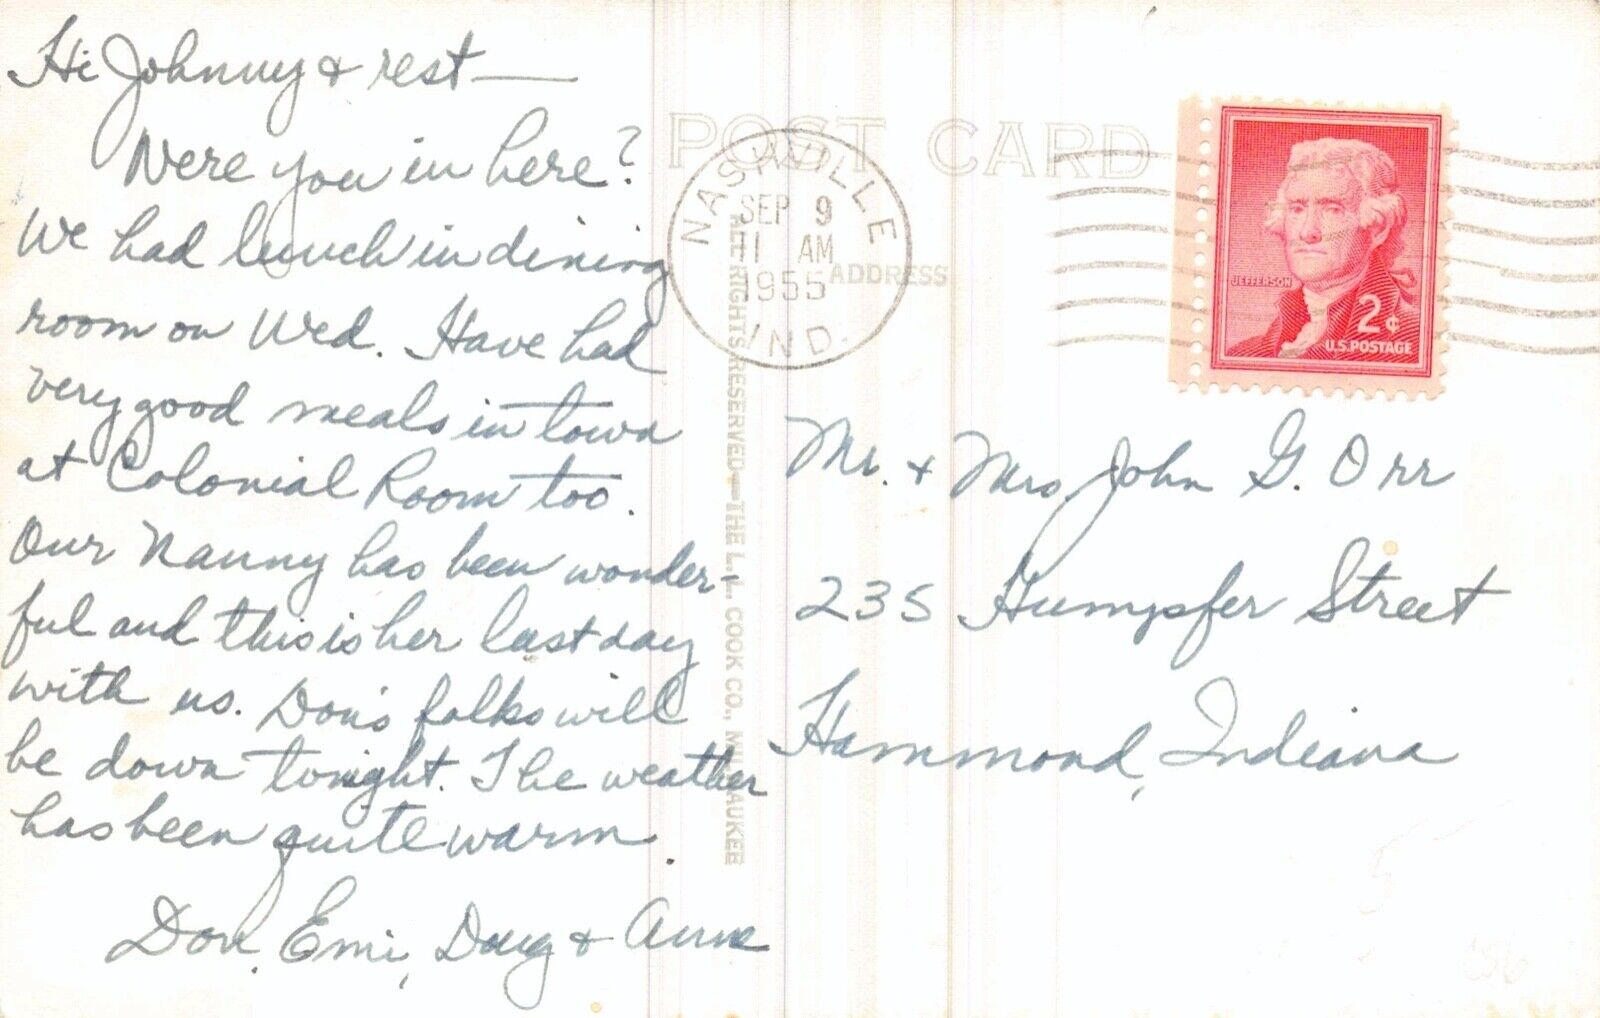 Hi Johnny & rest —
Were you in here?
We had lunch in dining
room on Wed. Have had
very good meals in town
at Colonial Room too.
Our Nanny has been wonder-
ful and this is her last day
with us. Don's folks will
be down tonight. The weather
has been quite warm.
Don, Emi, Doug & Anne
POST CARD
NASHVILLE
SEP 9
11 AM
1955
IND.
ADDRESS
ALL RIGHTS RESERVED—THE L. L. COOK CO., MILWAUKEE
JEFFERSON
2¢
U.S. POSTAGE
Mr. & Mrs John G. Orr
235 Humpfer Street
Hammond, Indiana